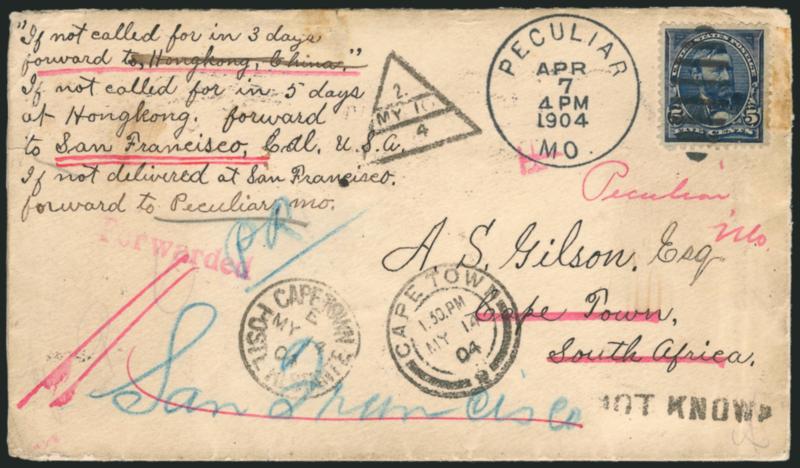 "If not called for in 3 days
forward to, Hongkong, China."
If not called for in 5 days
at Hongkong. forward
to San Francisco, Cal. U.S.A.
If not delivered at San Francisco.
forward to Peculiar, Mo.
2.
MY
4
PECULIAR
APR
7
4 PM
1904
MO.
UNITED STATES POSTAGE
5 5
FIVE CENTS
Peculiar
Mo.
Forwarded
A S. Gilson. Esq
Cape Town,
South Africa.
CAPETOWN
E
MY
04
POSTE RESTANTE
CAPE TOWN
1.30.PM
MY 14
04
San Francisco
NOT KNOWN